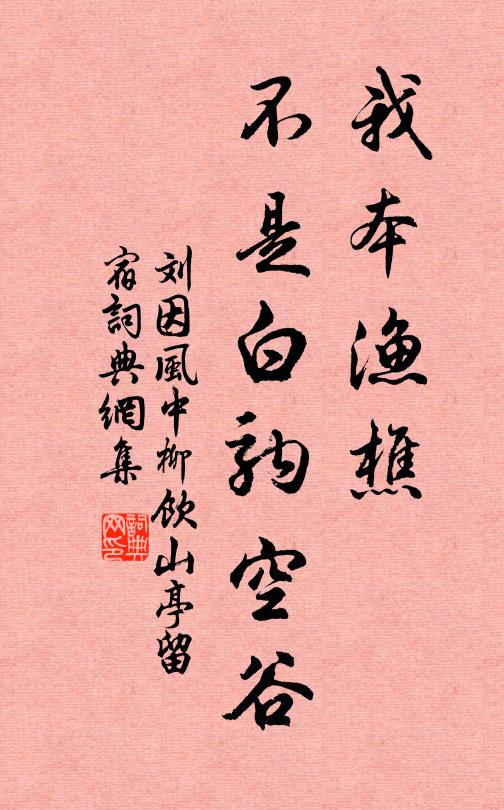 我本漁樵
不是白駒空谷
刘因風中柳飲山亭留
宿詞典網集
詞典
网印